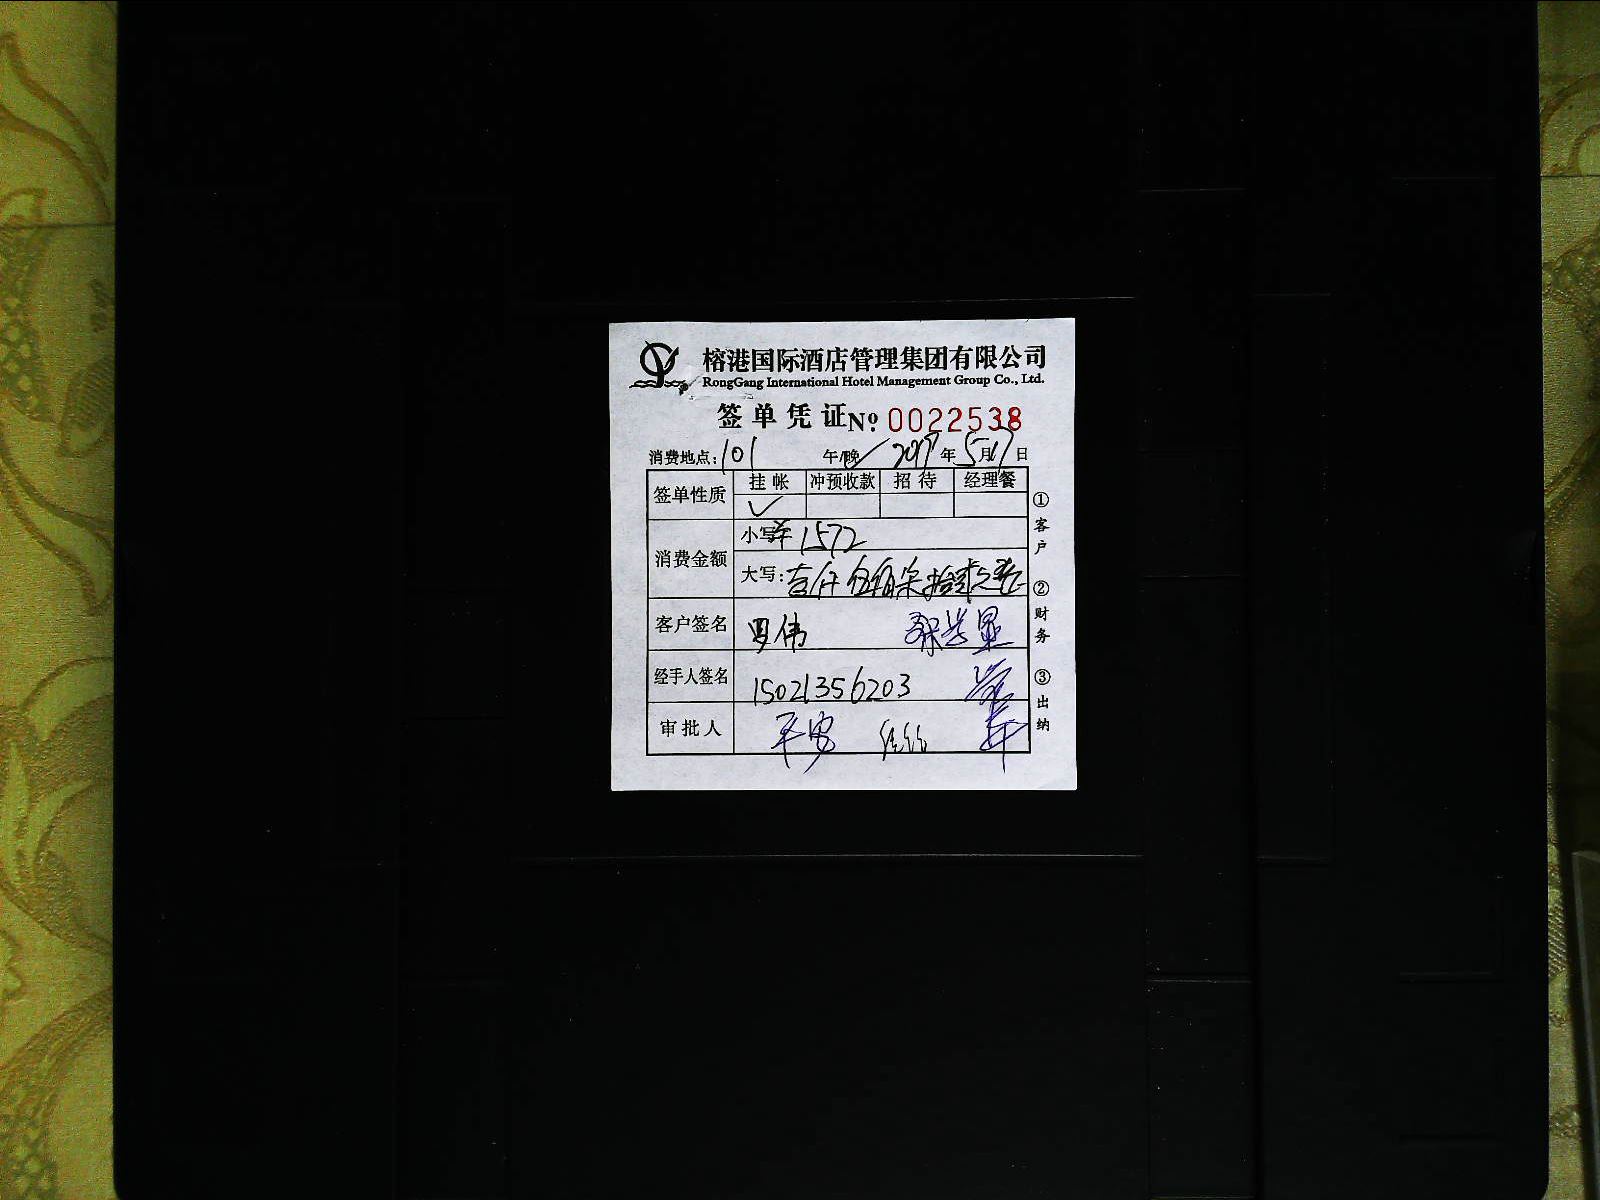 榕港国际酒店管理集团有限公司
RongGang International Hotel Management Group Co., Ltd.
签单凭证 Nº 0022538
消费地点: 101 午/晚✓ 2017年5月17日
签单性质 挂帐 冲预收款 招待 经理餐
✓
消费金额 小写: 1572
大写: 壹仟伍佰柒拾贰元整
客户签名 罗伟
经手人签名 15021356203
审批人
①客户
②财务
③出纳